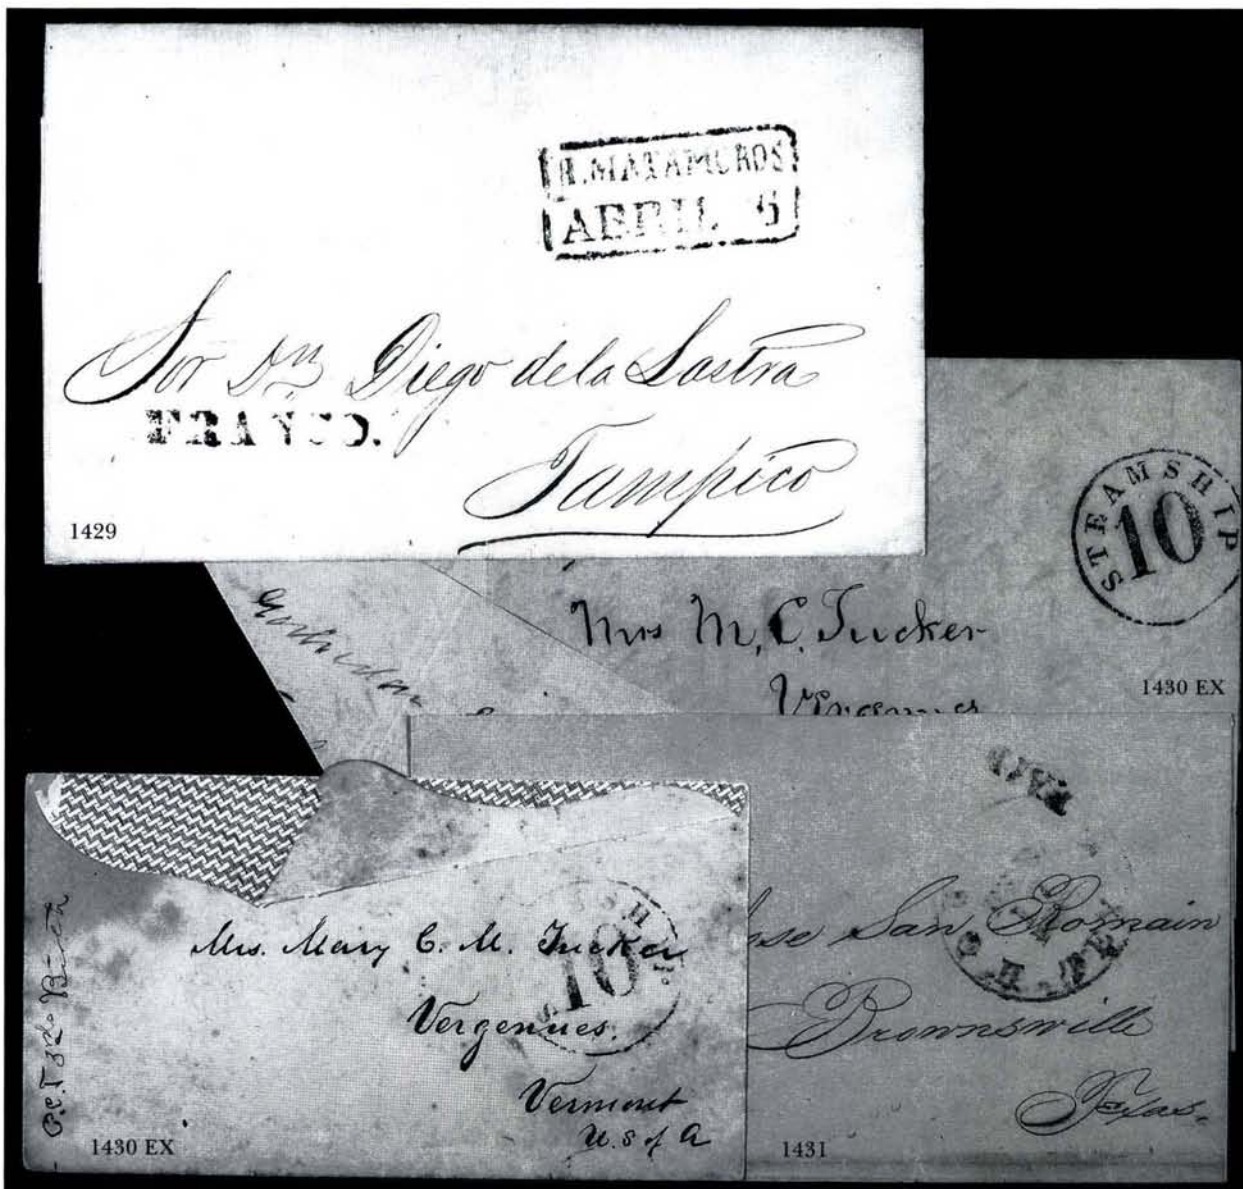 H. MATAMOROS
ABRIL 6
Sor Dn Diego de la Lastra
FRANCO.
Tampico
1429
STEAMSHIP
10
Mrs M, C, Tucker
1430 EX
Mrs. Mary C. M. Tucker
10
Vergennes.
Vermont
U. S of A
1430 EX
PAID
Jose San Romain
Brownsville
Texas.
1431